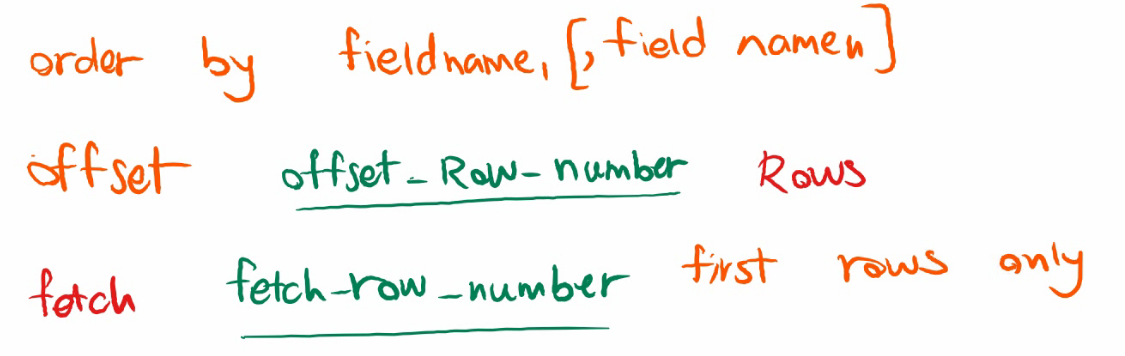 order by fieldname, [, field namen]
offset offset_Row_number Rows
fetch fetch_row_number first rows only